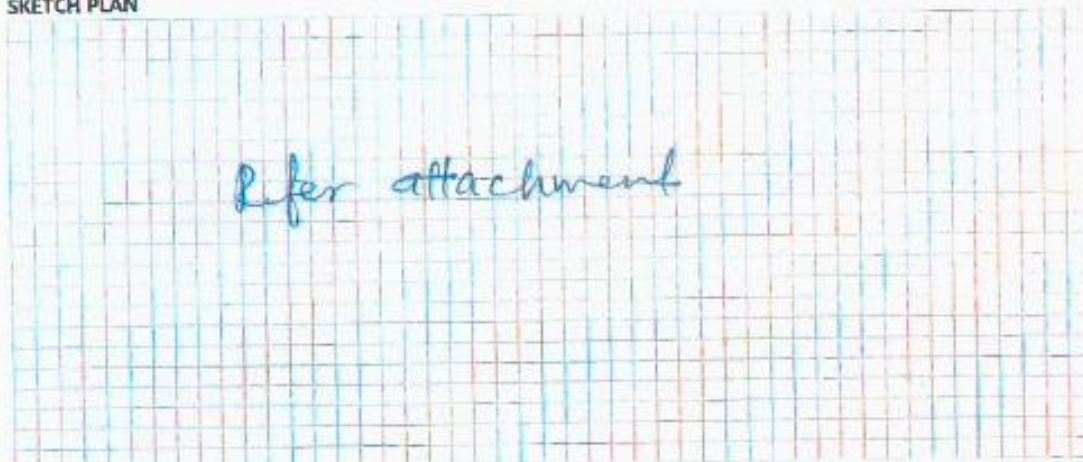 SKETCH PLAN
Refer attachment